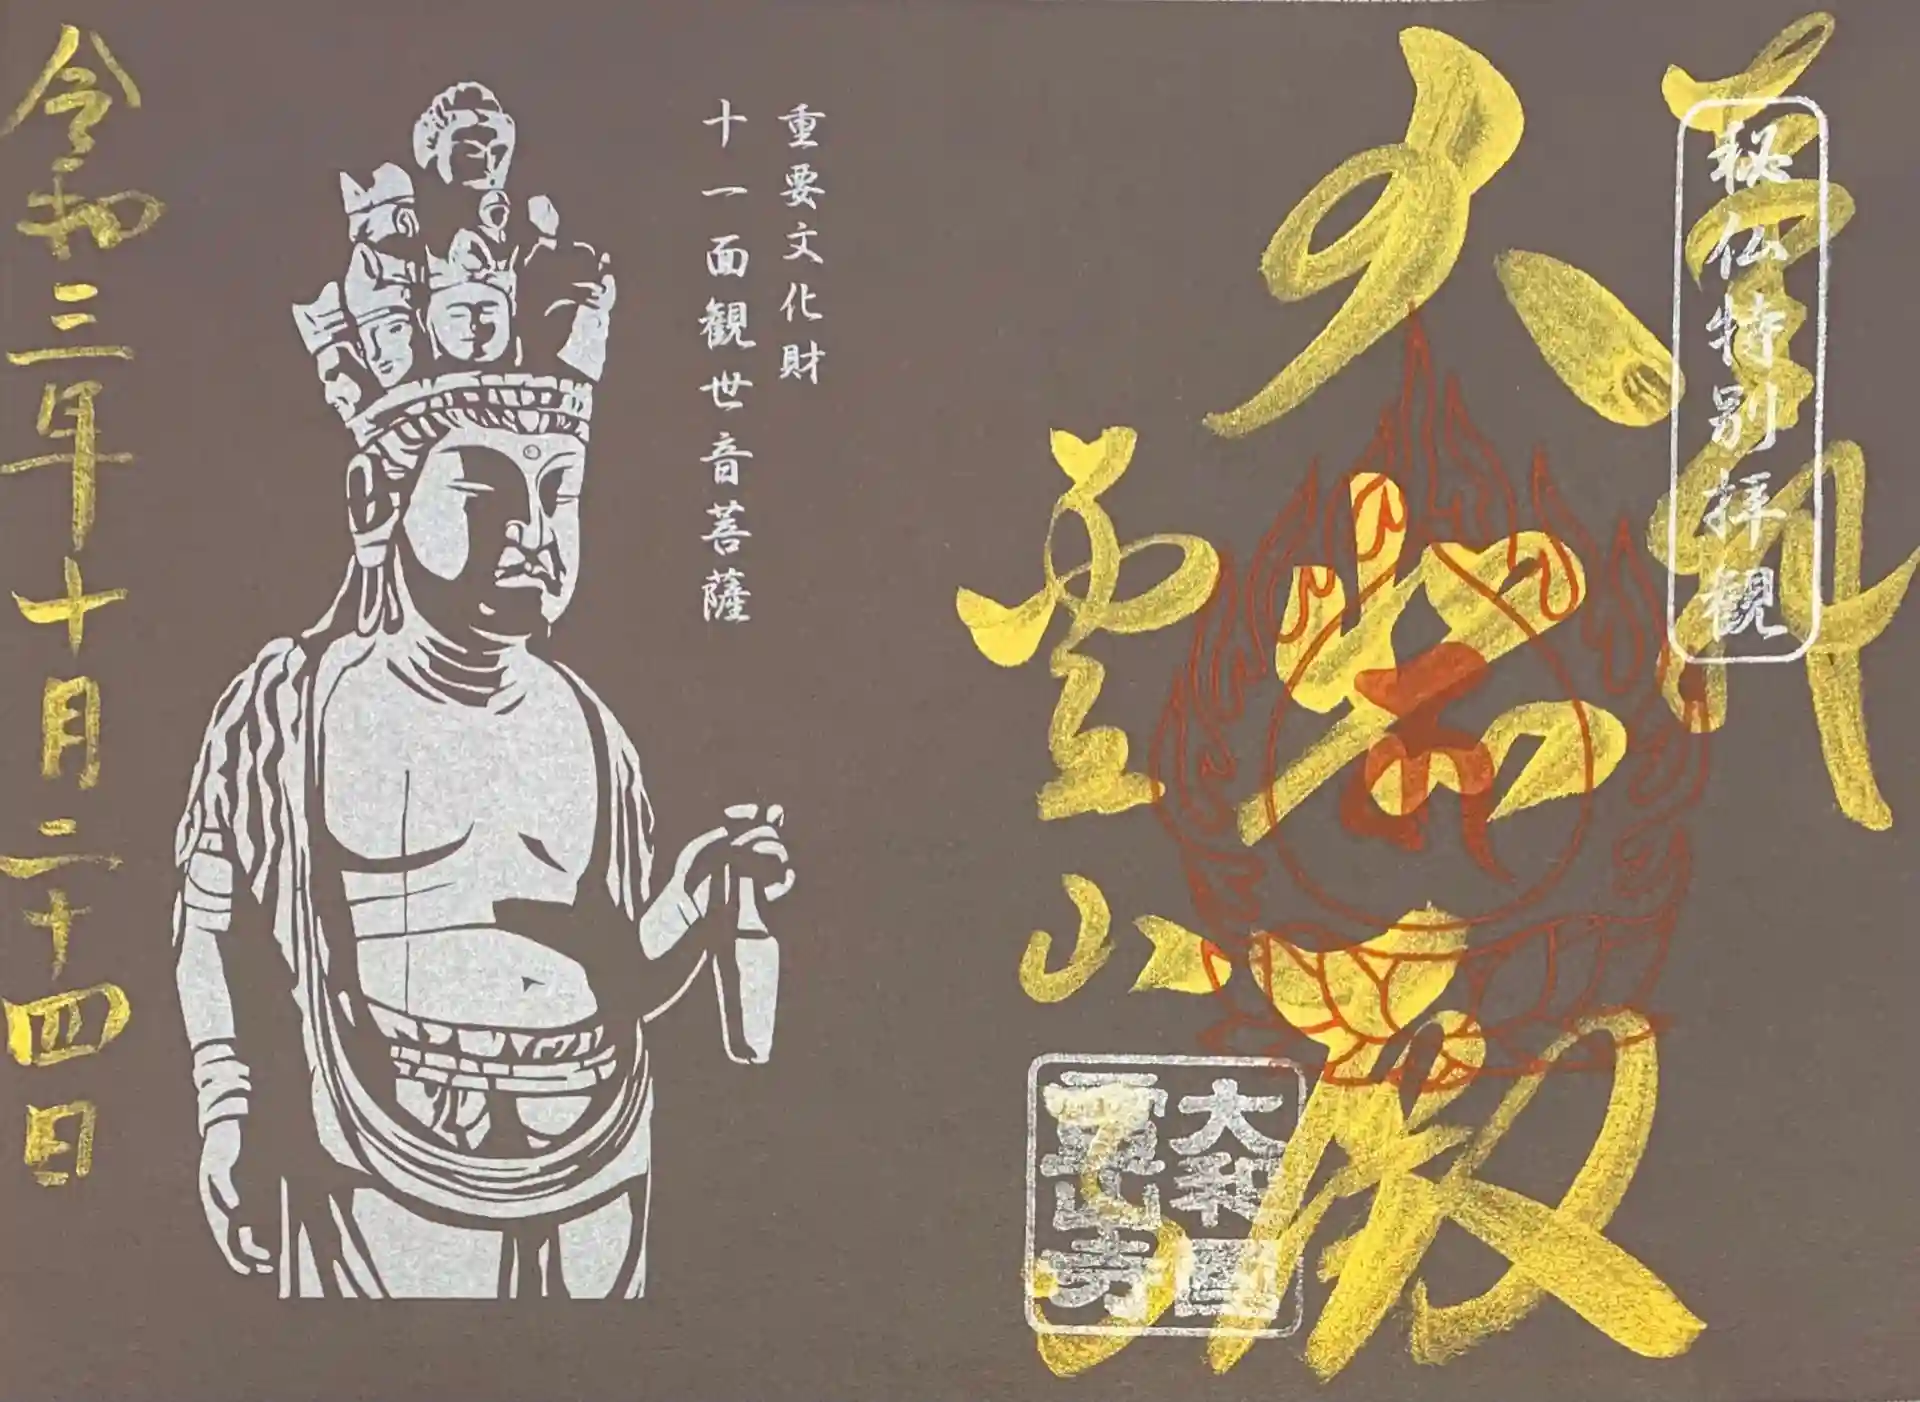 奉拝
秘仏特別拝観
大
霊山寺
大和国
霊山寺
重要文化財
十一面観世音菩薩
令和三年十月二十四日